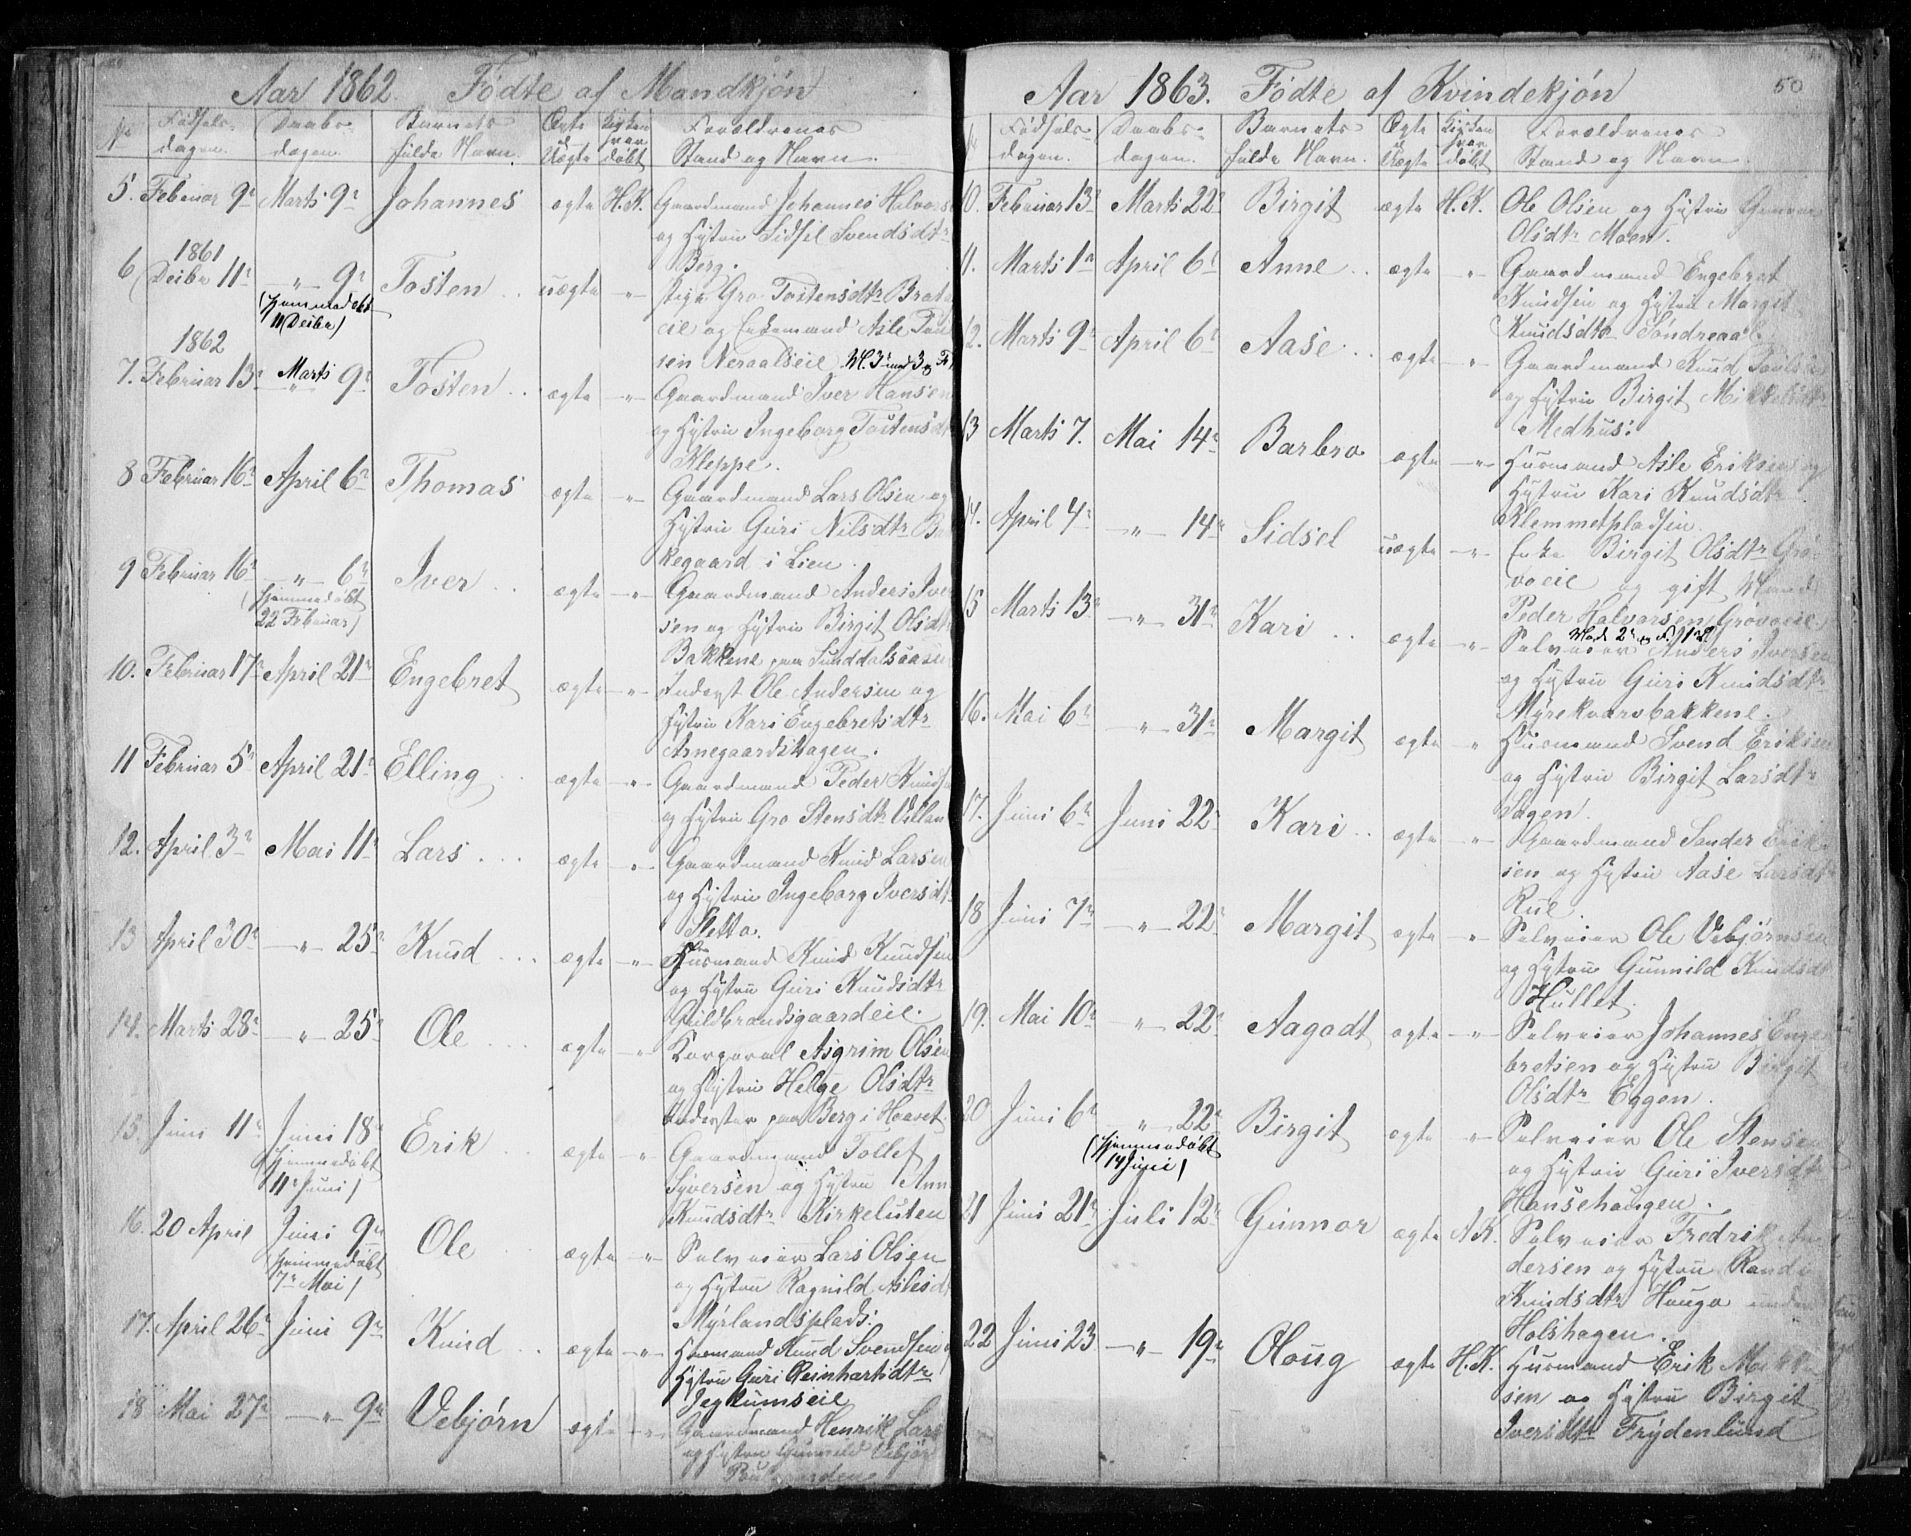 Aar 1862. Fødte af Mandkjön
No Fødsels-dagen. Daabs-dagen Barnets fulde Navn. Ægte Uægte Kirken hvor døbt Forældrenes Stand og Navn.
5. Februar 9de Marts 9de Johannes ægte H.K. Gaardmand Johannes Halvors
og Hustru Sidsel Svendsdtr
Berg.
1861
6 Decbr 11te " 9de Tosten uægte " Pige Gro Tostensdtr Brata
(hjemmedøbt
11 Decbr)
eie og Enkemand Asle
sen Neraalseie
1862
7. Februar 13de Marts 9de Tosten ægte " Gaardmand Iver Hansen
og Hustru Ingeborg Tostensdtr
Kleppe.
8 Februar 16de April 6te Thomas ægte " Gaardmand Lars Olsen og
Hustru Guri Nilsdtr
kegaard i Lien.
9 Februar 16de " 6te Iver ægte " Gaardmand Anders Iver
(hjemmedøbt
22 Februar)
sen og Hustru Birgit Olsdtr
Bakkene paa Sunddalsaasen
10. Februar 17de April 21de Engebret ægte " Inderst Ole Andersen og
Hustru Kari Engebretsdtr
Arnegaardshagen.
11 Februar 5te April 21de Elling ægte " Gaardmand Peder Knuds
og Hustru Gro Stensdtr Villan
12. April 3de Mai 11te Lars ægte " Gaardmand Knud Larsen
og Hustru Ingeborg Iversdt
Sletto.
13 April 30de " 25de Knud ægte " Husmand Knud Knudsen
og Hustru Guri Knudsdtr
Guldbrandsgaardeie.
14. Marts 28de " 25de Ole ægte " Korporal Asgrim Olsen
og Hustru Helge Olsdtr
Inderster paa Berg i Haavet
15. Juni 11te Juni 18de Erik ægte " Gaardmand Tollef
(hjemmedøbt
11te Juni)
Syversen og Hustru Ann
Knudsdtr Kirkeluten
16. 20 April Juni 9de Ole ægte " Selveier Lars Olsen
hjemmedøbt
7de Mai)
og Hustru Ragnild Aslesdt
Myrlandsplads.
17. April 26de Juni 9de Knud ægte " Husmand Knud Svendsen
Hustru Guri Reinhartsdtr
Jeglumseie
18 Mai 27de " 9de Vebjørn ægte " Gaardmand Henrik Lars
og Hustru Gunnild Vebjør
Aar 1863. Fødte af Kvindekjön 50
Fødsels-dagen. Daabs-dagen. Barnets fulde Navn. Ægte Uægte Kirken hvor døbt Forældrenes Stand og Navn.
10. Februar 13de Marts 22de Birgit ægte H.K. Ole Olsen og Hustru
Olsdtr Moen.
11. Marts 1ste April 6te Anne ægte " Gaardmand Engebret
Knudsen og Hustru Margit
Knudsdtr Sondreaal
12. Marts 9de April 6te Aase ægte " Gaardmand Knud
og Hustru Birgit Mikkelsdtr
Medhus.
13 Marts 7. Mai 14de Barbro ægte " Husmand Asle Eriksen og
Hustru Kari Knudsdtr
Klemmetpladsen.
14. April 4de " 14de Sidsel uægte " Enke Birgit Olsdtr Grø-
voeie og gift Mand
Peder Halvorsen Grøvoeie
15 Marts 13de " 31te Kari ægte " Selveier Anders Iversen
og Hustru Guri Knudsdtr
Myrekvarvbakkene.
16. Mai 6te " 31te Margit ægte " Husmand Svend Eriksen
og Hustru Birgit Larsdtr
Hagen.
17. Juni 6te Juni 22de Kari ægte " Gaardmand Sander Erik-
sen og Hustru Aase Larsdtr
Rue.
18 Juni 7de " 22de Margit ægte " Selveier Ole Vebjørnsen
og Hustru Gunnild Knudsdt
Hullet.
19. Mai 10de " 22de Aagodt ægte " Selveier Johannes Enge-
bretsen og Hustru Birgit
Olsdtr Eggen.
20 Juni 6te " 22de Birgit ægte " Selveier Ole Stense
(hjemmedøbt
14 Juni)
og Hustru Guri Iversdtr
Hansehaugen.
21 Juni 21de Juli 12te Gunnor ægte A.K. Selveier Fredrik An
dersen og Hustru Randi
Knudsdtr Haugo under
Holshagen.
22 Juni 23 " 19de Oloug ægte H.K. Husmand Erik
sen og Hustru Birgit
Iversdtr Frydenlund